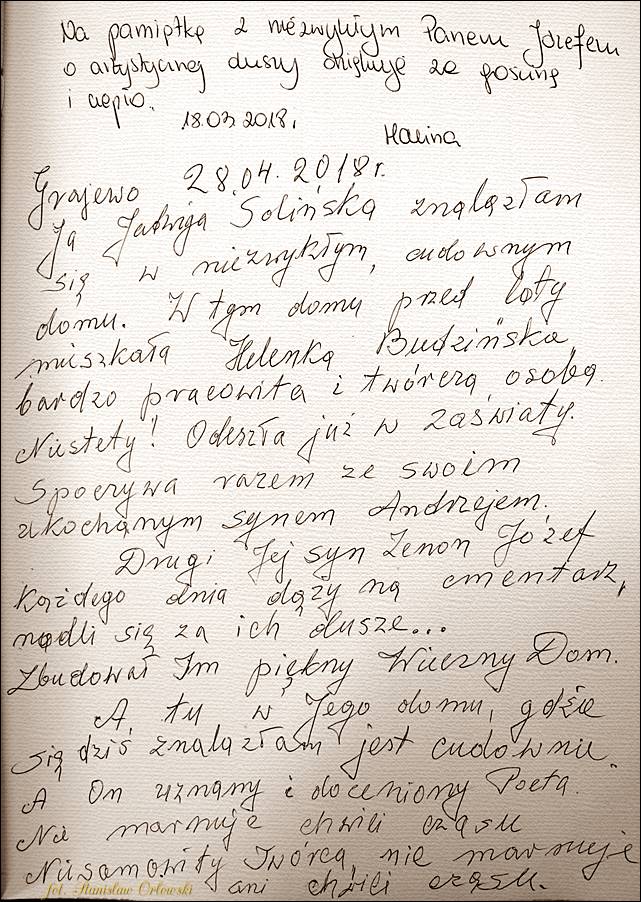 Na pamiątkę z niezwykłym Panem Józefem
o artystycznej duszy dziękuję za gościnę
i ciepło.
18.03.2018r.
Halina
Grajewo 28.04.2018r.
Ja Jadwiga Solińska znalazłam
się w niezwykłym, cudownym
domu. W tym domu przed laty
mieszkała Helenka Budzińska
bardzo pracowita i twórcza osoba.
Niestety! Odeszła już w zaświaty.
Spoczywa razem ze swoim
ukochanym synem Andrzejem.
Drugi Jej syn Zenon Józef
każdego dnia dąży na cmentarz,
modli się za ich dusze...
Zbudował Im piękny Wieczny Dom.
A tu w Jego domu, gdzie
się dziś znalazłam jest cudownie.
A On uznany i doceniony Poeta.
Nie marnuje chwili czasu
Niesamowity Twórca, nie marnuje
ani chwili czasu.
fot. Stanisław Orłowski